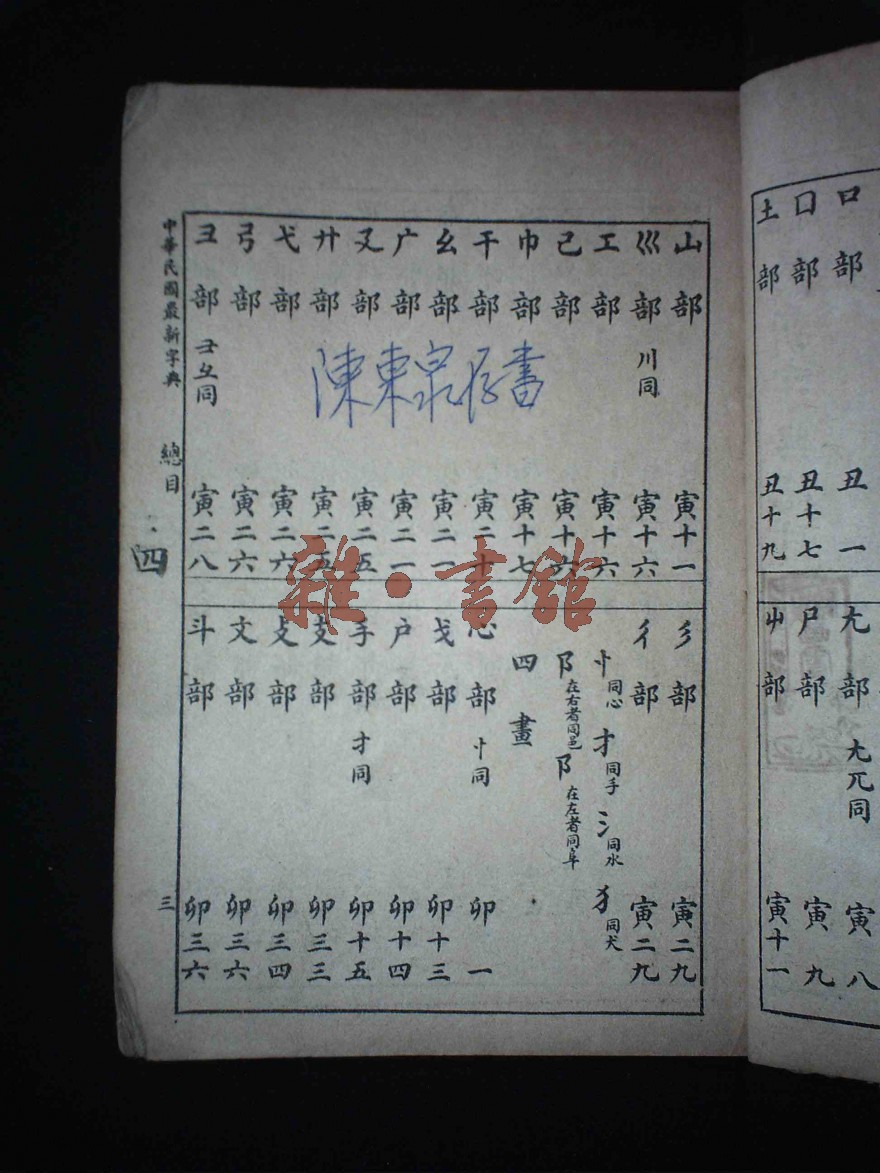 口部 丑一
囗部 丑十七
土部 丑十九
尢部 尤兀同 寅八
尸部 寅九
屮部 寅十一
山部 寅十一
巛部 川同 寅十六
工部 寅十六
己部 寅十六
巾部 寅十七
干部 寅二十
幺部 寅二一
广部 寅二一
廴部 寅二五
廾部 寅二五
弋部 寅二六
弓部 寅二六
彐部 彑同 寅二八
彡部 寅二九
彳部 寅二九
忄同心 扌同手 氵同水 犭同犬
阝在右者同邑 阝在左者同阜
四畫
心部 忄同 卯一
戈部 卯十三
户部 卯十四
手部 扌同 卯十五
支部 卯三三
攴部 卯三四
文部 卯三六
斗部 卯三六
中華民國最新字典 總目 三
四
陳東泉存書
雜·書館